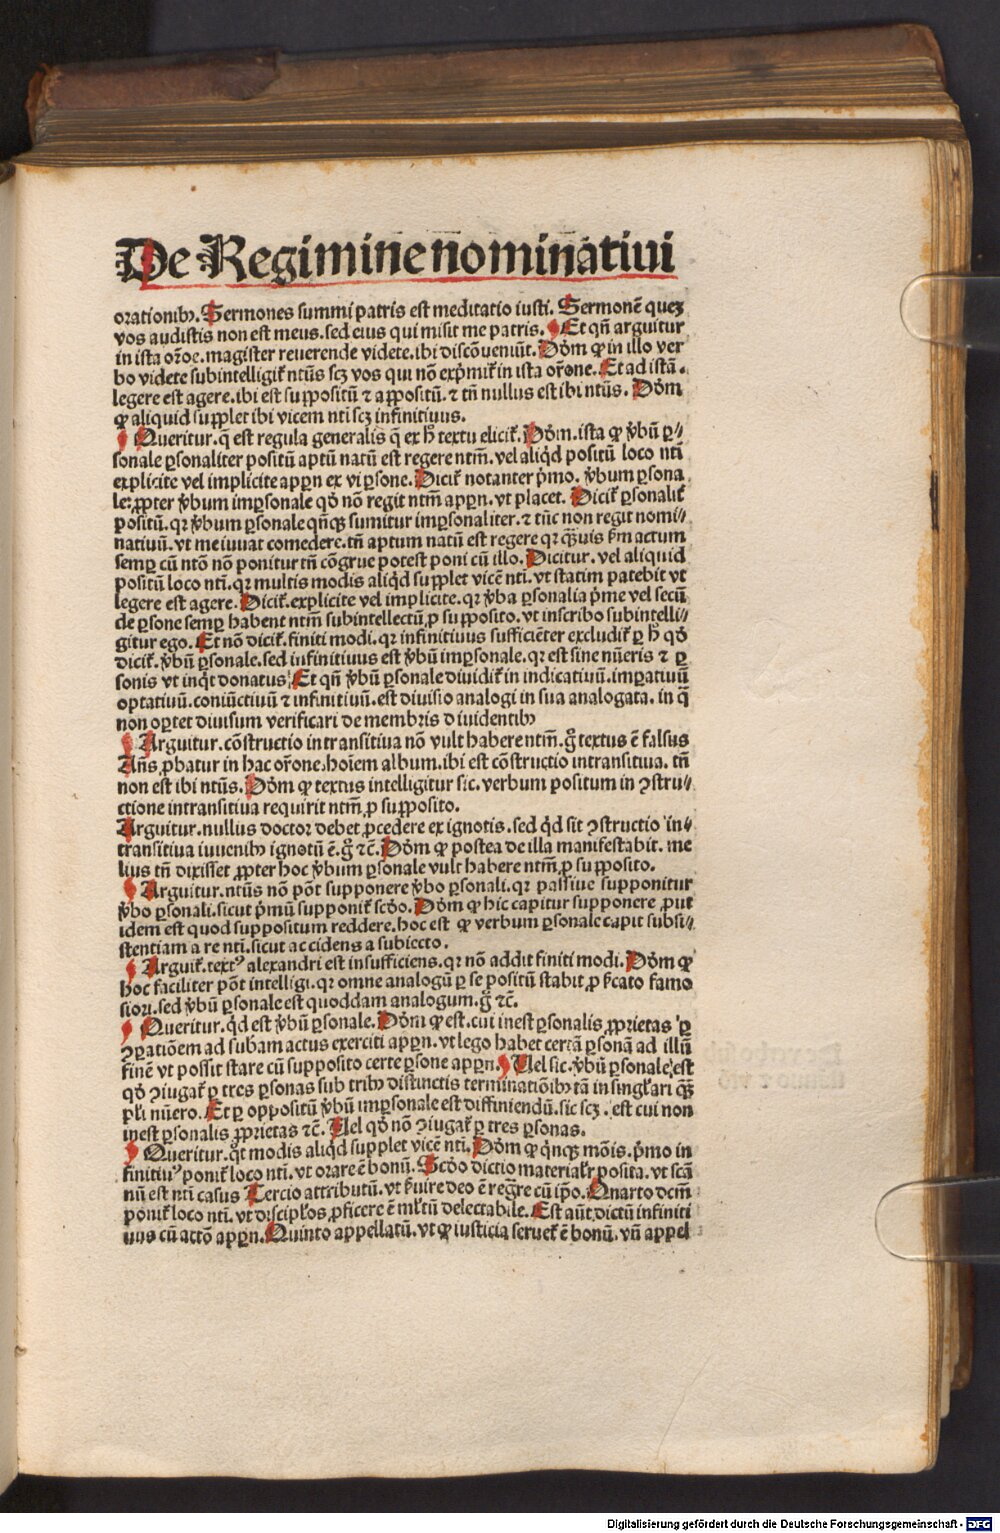 De Regimine nominatiui
orationibꝰ. Sermones summi patris est meditatio iusti. Sermonē quez
vos audistis non est meus. sed eius qui misit me patris. Et qn̄ arguitur
in ista or̄oe. magister reuerende videte. ibi discōueniūt. Dōm ꝙ in illo ver
bo videte subintelligit̄ ntūs scz vos qui nō exp̄mit̄ in ista or̄one. Et ad istā.
legere est agere. ibi est suppositū ⁊ appositū. ⁊ tn̄ nullus est ibi ntūs. Dōm
ꝙ aliquid supplet ibi vicem nti scz infinitiuus.
Queritur. q̄ est regula generalis q̄ ex h̄ textu elicit̄. Dōm. ista ꝙ v̄bū ꝑ⸗
sonale ꝑsonaliter positū aptū natū est regere ntm̄. vel aliqd̄ positū loco nti
explicite vel implicite appn̄ ex vi ꝑsone. Dicit̄ notanter p̄mo. v̄bum ꝑsona
le: ꝓpter v̄bum imꝑsonale qd̄ nō regit ntm̄ appn̄. vt placet. Dicit̄ ꝑsonalit̄
positū. qꝛ v̄bum ꝑsonale qn̄qꝫ sumitur imꝑsonaliter. ⁊ tūc non regit nomi⸗
natiuū. vt me iuuat comedere. tn̄ aptum natū est regere qꝛ qꝫuis fm̄ actum
semꝑ cū ntō nō ponitur tn̄ cōgrue potest poni cū illo. Dicitur. vel aliquid
positū loco nti. qꝛ multis modis aliqd̄ supplet vicē nti. vt statim patebit vt
legere est agere. Dicit̄. explicite vel implicite. qꝛ v̄ba ꝑsonalia p̄me vel secū
de ꝑsone semꝑ habent ntm̄ subintellectū ꝓ supposito. vt inscribo subintelli⸗
gitur ego. Et nō dicit̄. finiti modi. qꝛ infinitiuus sufficiēter excludit̄ ꝑ h̄ qd̄
dicit̄. v̄bū ꝑsonale. sed infinitiuus est v̄bū imꝑsonale. qꝛ est sine nūeris ⁊ ꝑ
sonis vt inqt̄ donatus. Et qn̄ v̄bū ꝑsonale diuidit̄ in indicatiuū. imꝑatiuū
optatiuū. coniūctiuū ⁊ infinitiuū. est diuisio analogi in sua analogata. in q̄
non oꝑtet diuisum verificari de membris diuidentibꝰ
Arguitur. cōstructio intransitiua nō vult habere ntm̄. g̊ textus ē falsus
An̄s ꝓbatur in hac or̄one. hoīem album. ibi est cōstructio intransitiua. tn̄
non est ibi ntūs. Dōm ꝙ textus intelligitur sic. verbum positum in ꝯstru⸗
ctione intransitiua requirit ntm̄ ꝓ supposito.
Arguitur. nullus doctor debet ꝓcedere ex ignotis. sed qd̄ sit ꝯstructio in⸗
transitiua iuuenibꝰ ignotū ē. g̊ ⁊c̄. Dōm ꝙ postea de illa manifestabit. me
lius tn̄ dixisset ꝓpter hoc v̄bum ꝑsonale vult habere ntm̄ ꝓ supposito.
Arguitur. ntūs nō pōt supponere v̄bo ꝑsonali. qꝛ passiue supponitur
v̄bo ꝑsonali. sicut p̄mū supponit̄ scd̄o. Dōm ꝙ hic capitur supponere ꝓut
idem est quod suppositum reddere. hoc est ꝙ verbum ꝑsonale capit subsi⸗
stentiam a re nti. sicut accidens a subiecto.
Arguit̄. textꝰ alexandri est insufficiens. qꝛ nō addit finiti modi. Dōm ꝙ
hoc faciliter pōt intelligi. qꝛ omne analogū ꝑ se positū stabit ꝓ sc̄ato famo
siori. sed v̄bū ꝑsonale est quoddam analogum. g̊ ⁊c̄.
Queritur. qd̄ est v̄bū ꝑsonale. Dōm ꝙ est. cui inest ꝑsonalis ꝓprietas ꝑ
ꝯꝑatiōem ad subam actus exerciti appn̄. vt lego habet certā ꝑsonā ad illū
finē vt possit stare cū supposito certe ꝑsone appn̄. Vel sic. v̄bū ꝑsonale est
qd̄ ꝯiugat̄ ꝑ tres ꝑsonas sub tribꝰ distinctis terminatiōibꝰ tā in singl̄ari qꝫ
pl̄i nūero. Et ꝑ oppositū v̄bū imꝑsonale est diffiniendū. sic scz. est cui non
inest ꝑsonalis ꝓprietas ⁊c̄. Vel qd̄ nō ꝯiugat̄ ꝑ tres ꝑsonas.
Queritur. qt̄ modis aliqd̄ supplet vicē nti. Dōm ꝙ qn̄qꝫ mōis. p̄mo in
finitiuꝰ ponit̄ loco nti. vt orare ē bonū. Scd̄o dictio materialr̄ posita. vt scā
nū est nti casus Tercio attributū. vt s̄uire deo ē regr̄e cū ip̄o. Quarto dcm̄
ponit̄ loco nti. vt discipl̄os ꝓficere ē ml̄tū delectabile. Est aūt dictū infiniti
uus cū actō appn̄. Quinto appellatū. vt ꝙ iusticia seruet̄ ē bonū. vn̄ appel
Digitalisierung gefördert durch die Deutsche Forschungsgemeinschaft - DFG